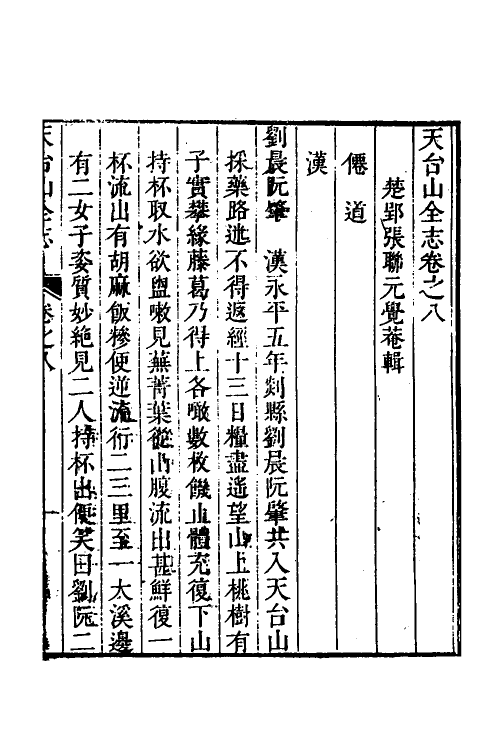 天台山全志卷之八
楚郢張聯元覺菴輯
僊道
漢
劉晨阮肇　漢永平五年剡縣劉晨阮肇共入天台山
採藥路迷不得返經十三日糧盡遙望山上桃樹有
子實攀緣藤葛乃得上各噉數枚饑止體充復下山
持杯取水欲盥嗽見蕪菁葉從山腹流出甚鮮復一
杯流出有胡麻飯糝便逆流行二三里至一大溪邊
有二女子姿質妙絶見二人持杯出便笑曰劉阮二
天台山全志　卷之八　一